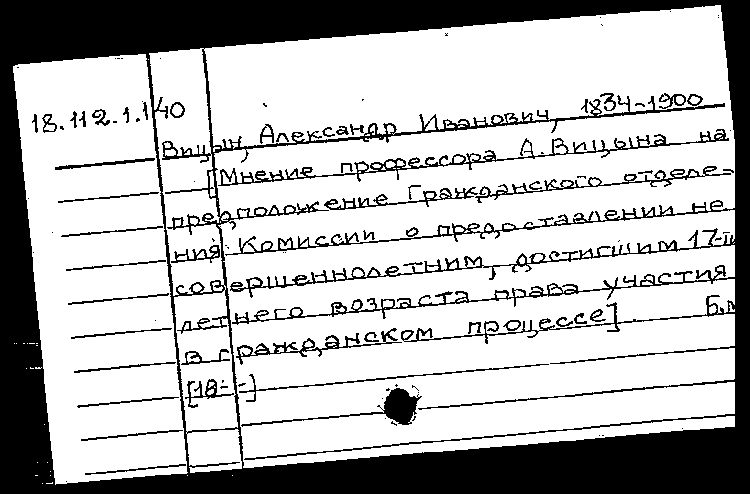 18.112.1.140
Вицын, Александр Иванович, 1834-1900
[Мнение профессора А.Вицына на
предположение Гражданского отделе=
ния Комиссии о предоставлении не
совершеннолетним, достигшим 17-ти
летнего возраста права участия
в гражданском процессе] Б.м
[18--]